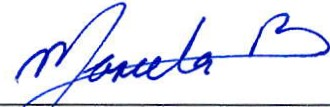 Marcela B